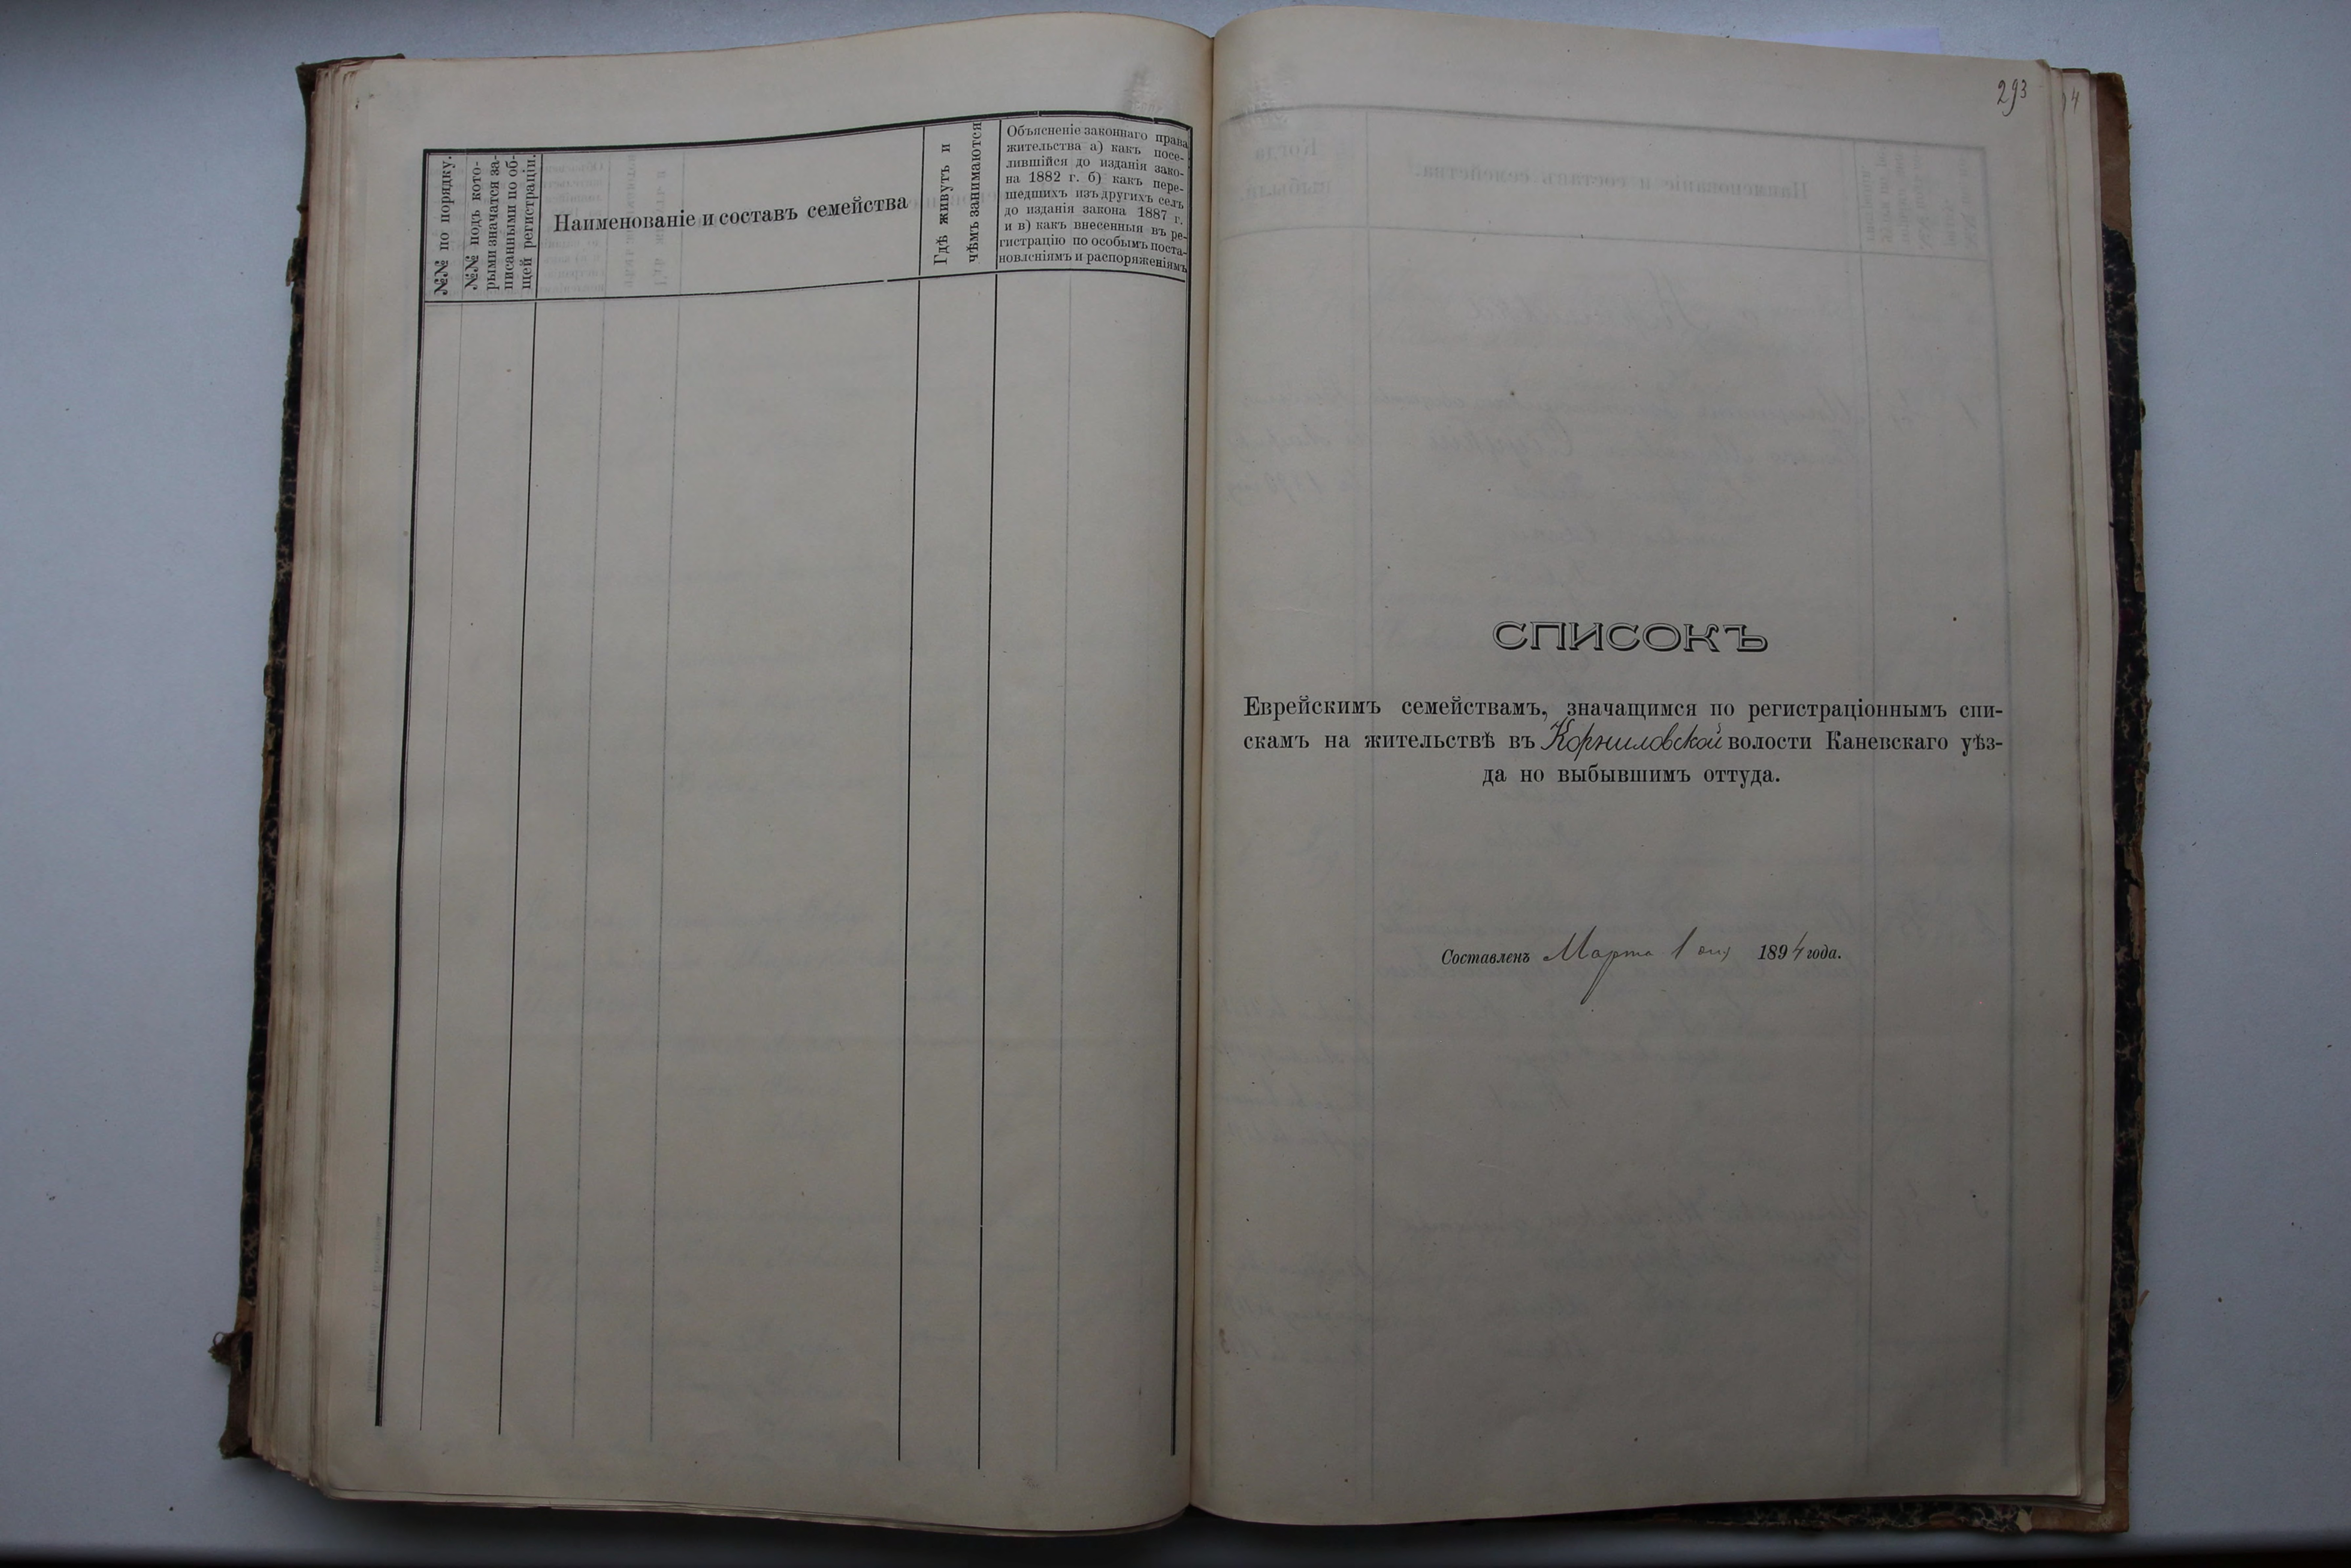 №№ по порядку.
№№ подъ кото-
рыми значатся за-
писанными по об-
щей регистраціи.
Наименованіе и составъ семейства
Гдѣ живутъ и
чѣмъ занимаются
Объясненіе законнаго права
жительства а) какъ посе-
лившійся до изданія зако-
на 1882 г. б) какъ пере-
шедшихъ изъ другихъ селъ
до изданія закона 1887 г.
и в) какъ внесенныя въ ре-
гистрацію по особымъ поста-
новленіямъ и распоряженіямъ
293
СПИСОКЪ
Еврейскимъ семействамъ, значащимся по регистраціоннымъ спи-
скамъ на жительствѣ въ Корниловской волости Каневскаго уѣз-
да но выбывшимъ оттуда.
Составленъ Марта 1 дня 1894 года.